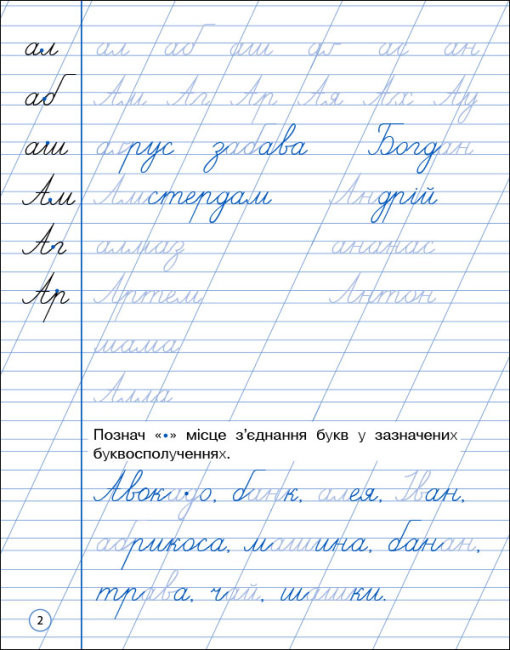 ал ал аб аш аг ас ан
аб Ам Аг Ар Ая Ах Ау
аш агрус забава Богдан
Ам Амстердам Андрій
Аг алмаз ананас
Ар Артем Антон
шама
Алла
Познач «•» місце з’єднання букв у зазначених
буквосполученнях.
Авокадо, банк, алея, Іван,
абрикоса, машина, банан,
трава, чай, шашки.
2